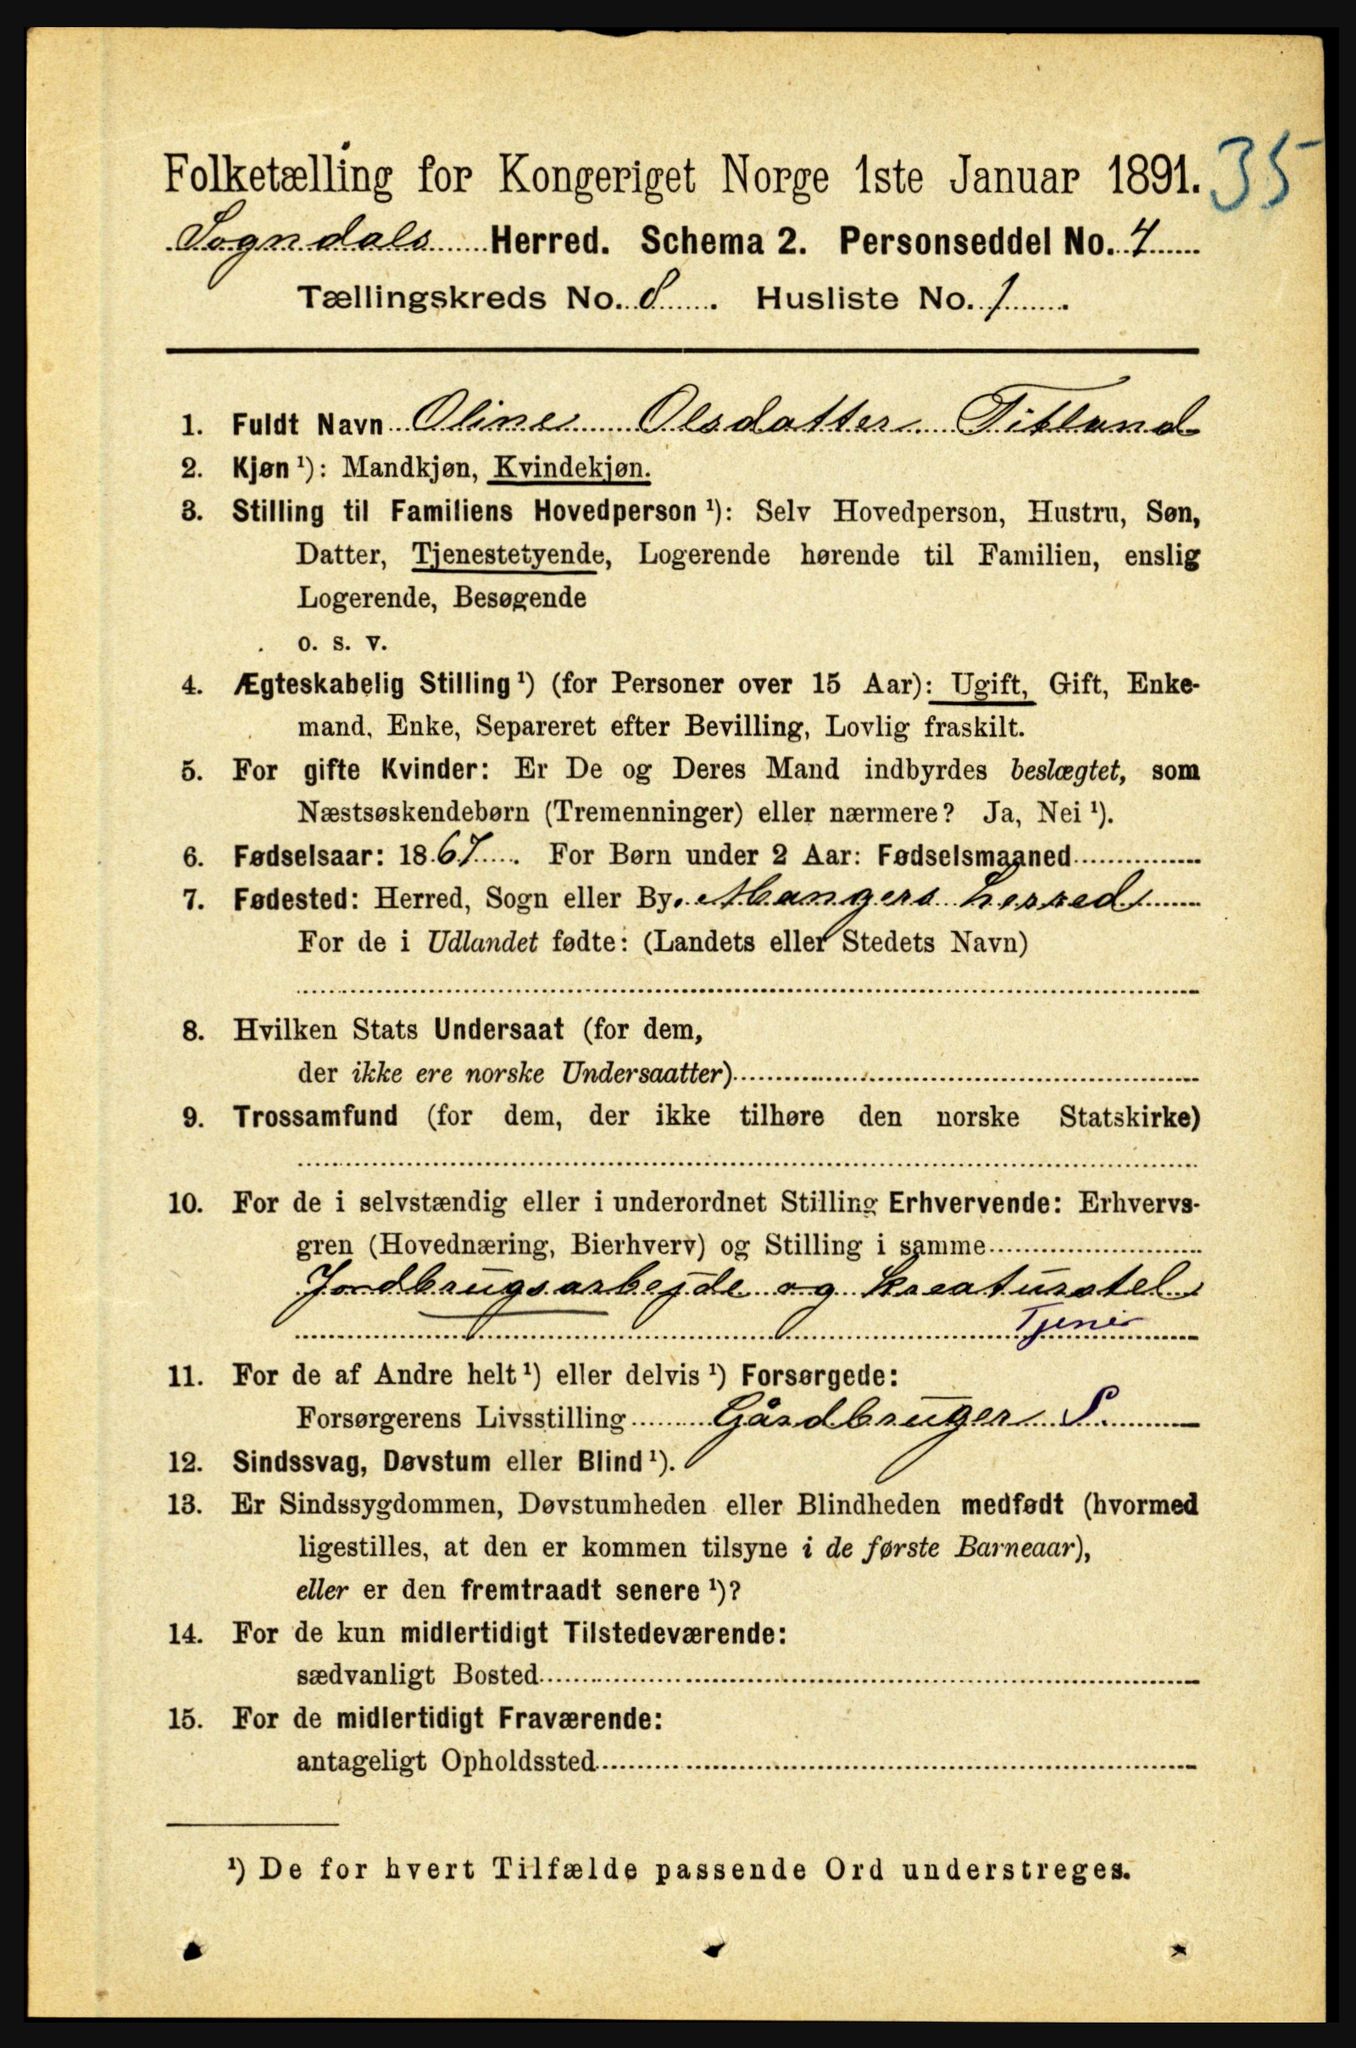 Folketælling for Kongeriget Norge 1ste Januar 1891. 35
Sogndals Herred. Schema 2. Personseddel No. 4
Tællingskreds No. 8. Husliste No. 1.
1. Fuldt Navn Oline Olsdatter Titland
2. Kjøn ¹): Mandkjøn, Kvindekjøn.
3. Stilling til Familiens Hovedperson ¹): Selv Hovedperson, Hustru, Søn,
Datter, Tjenestetyende, Logerende hørende til Familien, enslig
Logerende, Besøgende
o. s. v.
4. Ægteskabelig Stilling ¹) (for Personer over 15 Aar): Ugift, Gift, Enke-
mand, Enke, Separeret efter Bevilling, Lovlig fraskilt.
5. For gifte Kvinder: Er De og Deres Mand indbyrdes beslægtet, som
Næstsøskendebørn (Tremenninger) eller nærmere? Ja, Nei ¹).
6. Fødselsaar: 1867. For Børn under 2 Aar: Fødselsmaaned
7. Fødested: Herred, Sogn eller By. Mangers herred
For de i Udlandet fødte: (Landets eller Stedets Navn)
8. Hvilken Stats Undersaat (for dem,
der ikke ere norske Undersaatter)
9. Trossamfund (for dem, der ikke tilhøre den norske Statskirke)
10. For de i selvstændig eller i underordnet Stilling Erhvervende: Erhvervs-
gren (Hovednæring, Bierhverv) og Stilling i samme
Jordbrugsarbejde og kreaturstel
Tjener
11. For de af Andre helt ¹) eller delvis ¹) Forsørgede:
Forsørgerens Livsstilling Gårdbruger S.
12. Sindssvag, Døvstum eller Blind ¹).
13. Er Sindssygdommen, Døvstumheden eller Blindheden medfødt (hvormed
ligestilles, at den er kommen tilsyne i de første Barneaar),
eller er den fremtraadt senere ¹)?
14. For de kun midlertidigt Tilstedeværende:
sædvanligt Bosted
15. For de midlertidigt Fraværende:
antageligt Opholdssted
¹) De for hvert Tilfælde passende Ord understreges.